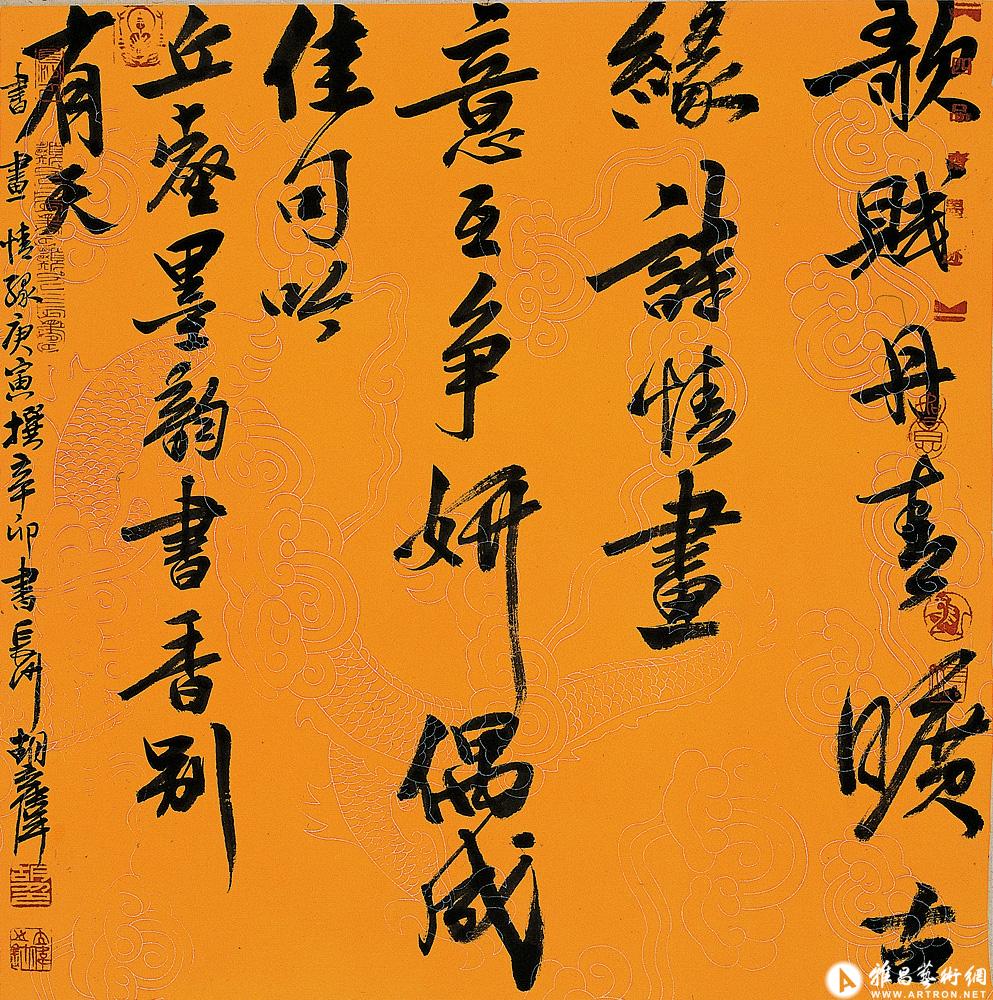 歌賦丹青曠古
緣詩情畫
意互争妍偶成
佳句吟
丘壑墨韵書香别
有天
書畫情緣庚寅撰辛卯書長胡
雅昌藝術網
WWW.ARTRON.NET